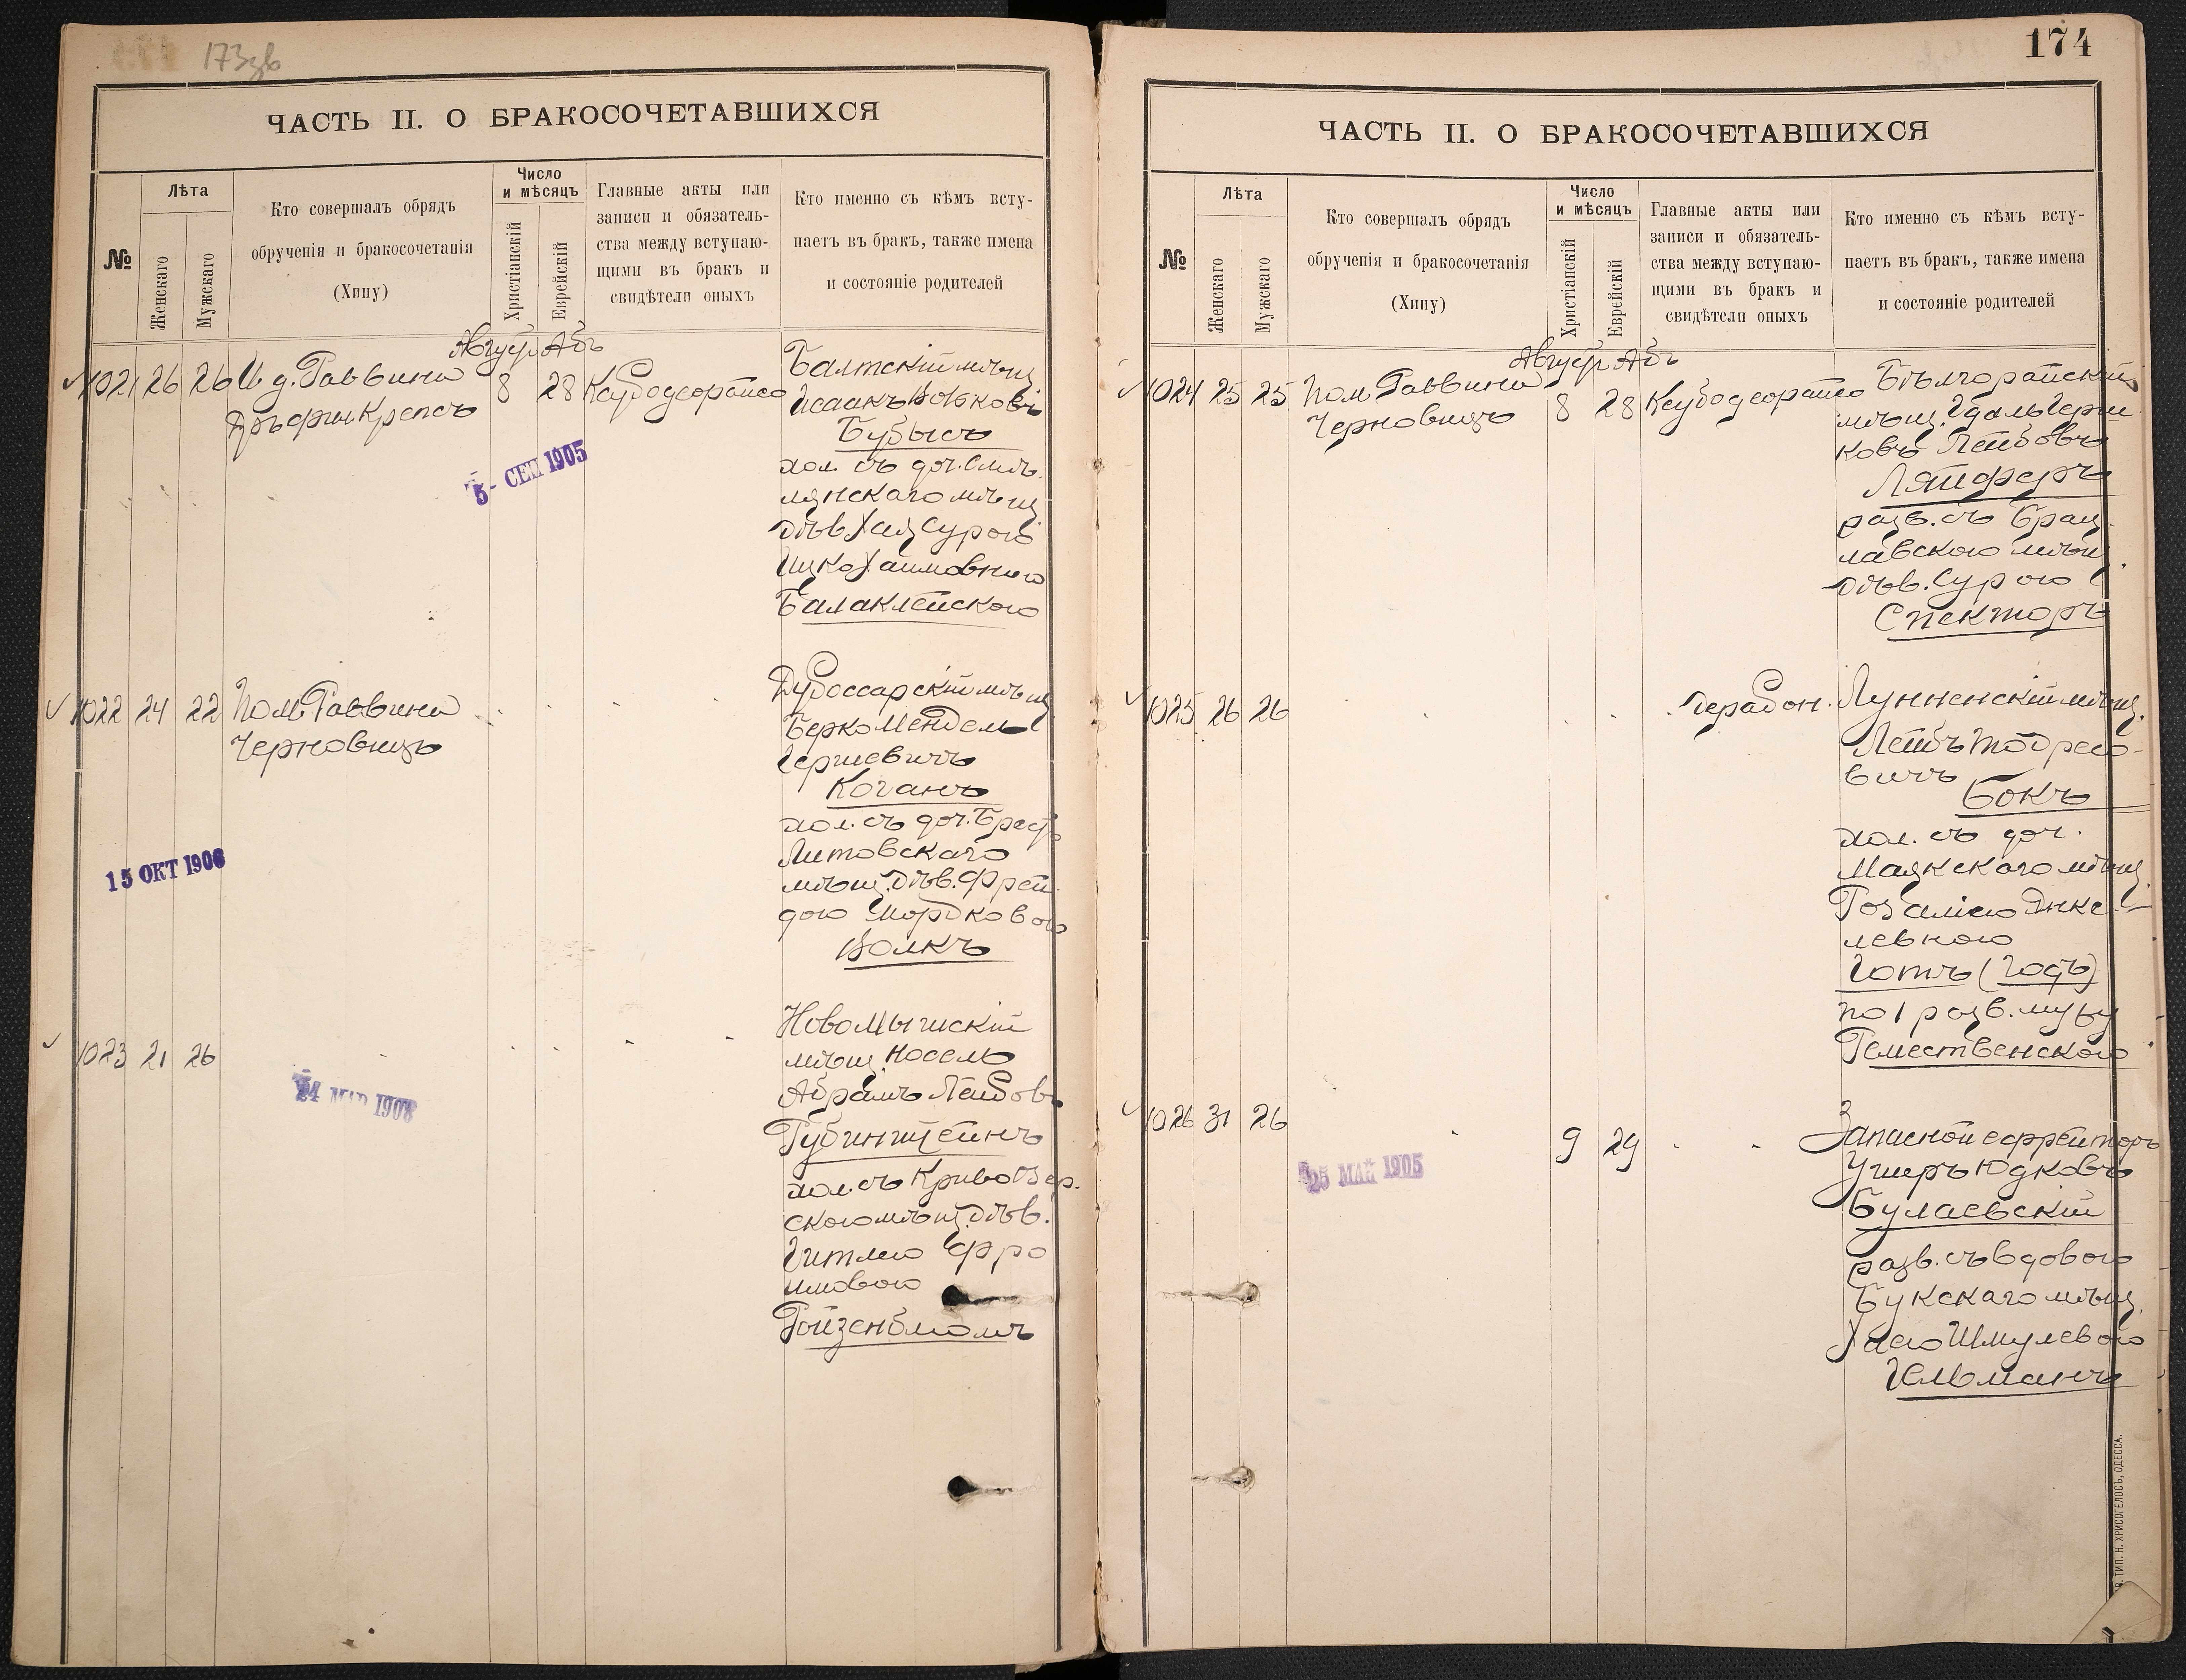 173зв
ЧАСТЬ II. О БРАКОСОЧЕТАВШИХСЯ
№
Лѣта
Женскаго
Мужскаго
Кто совершалъ обрядъ
обрученія и бракосочетанія
(Хипу)
Число
и мѣсяцъ
Христіанскій
Еврейскій
Главные акты или
записи и обязатель-
ства между вступаю-
щими въ бракъ и
свидѣтели оныхъ
Кто именно съ кѣмъ всту-
паетъ въ бракъ, также имена
и состояніе родителей
Август Абъ
1021 26 26 И д. Раввина 8 28
Крепсъ
Балтскій мѣщ
Исаакъ Волковъ
Бубысъ
хол. съ доч. Смѣ-
лянскаго мѣщ
дѣв Хая Сурою
Ицко Хаимовною
Балаклейского
5 - СЕН 1905
1022 24 22 Пом Раввина
Черновицъ
Дубоссарскій мѣщ
Берко Мендель
Гершевичъ
Коганъ
хол. съ доч. Брест
Литовскаго
мѣщ. дѣв. Фрей-
дою Мордковою
Волкъ
15 ОКТ 1906
1023 21 26
Новомышскій
мѣщ. Носель
Абрамъ Лейбовъ
Рубинштейнъ
хол. съ КривоОзер.
скою мѣщ. дѣв.
Гитлею Фро
имовою
Ройзенблюмъ
24 МАР 1908
174
ЧАСТЬ II. О БРАКОСОЧЕТАВШИХСЯ
№
Лѣта
Женскаго
Мужскаго
Кто совершалъ обрядъ
обрученія и бракосочетанія
(Хипу)
Число
и мѣсяцъ
Христіанскій
Еврейскій
Главные акты или
записи и обязатель-
ства между вступаю-
щими въ бракъ и
свидѣтели оныхъ
Кто именно съ кѣмъ всту-
паетъ въ бракъ, также имена
и состояніе родителей
Август Абъ
1024 25 25 Пом Раввина 8 28
Черновицъ
Бѣлгорайскій
мѣщ. Гдаль Герш
ковъ Лейбовъ
Ляйферъ
разв. съ Брац-
лавскою мѣщ.
дѣв. Сурою
Спекторъ
1025 26 26
дерабон.
Лунненскій мѣщ.
Лейбъ Тодресо-
вичъ
Бокъ
хол. съ доч.
Маякскаго мѣщ
Розаліею Янке
левною
Готъ (Годъ)
по 1 разв. мужу
Ремественского
1026 31 26 9 29
Запасной ефрейторъ
Ушеръ Юдковъ
Булаевскій
разв. съ вдовою
Букскаго мѣщ
Хаею Шмулевою
Гельманъ
25 МАЙ 1905
ТИП. Н. ХРИСОГЕЛОСЪ, ОДЕССА.